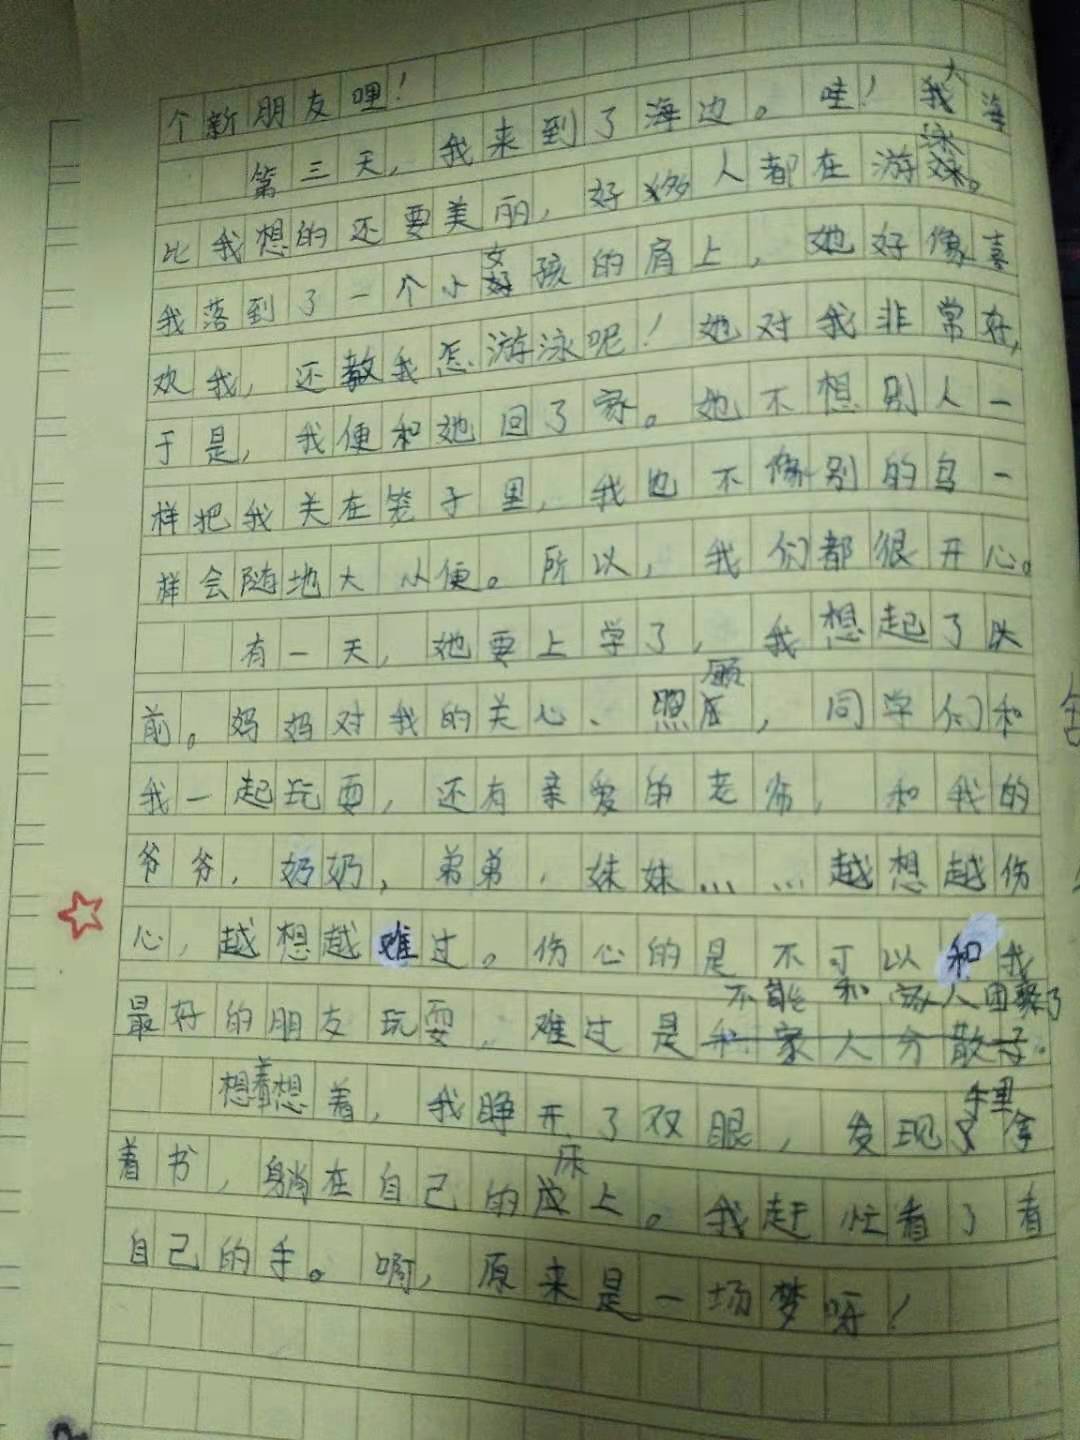 个新朋友哩！
第三天，我来到了海边。哇！大海
比我想的还要美丽，好多人都在游泳。
我落到了一个小女孩的肩上，她好像喜
欢我，还教我怎游泳呢！她对我非常好，
于是，我便和她回了家。她不想别人一
样把我关在笼子里，我也不像别的鸟一
样会随地大小便。所以，我们都很开心。
有一天，她要上学了，我想起了以
前。妈妈对我的关心、照顾，同学们和
我一起玩耍，还有亲爱的老师，和我的
爷爷，奶奶，弟弟，妹妹……越想越伤
心，越想越难过。伤心的是不可以和我
最好的朋友玩耍，难过是不能和家人团聚了
想着想着，我睁开了双眼，发现手里拿
着书，躺在自己的床上。我赶忙看了看
自己的手。啊，原来是一场梦呀！